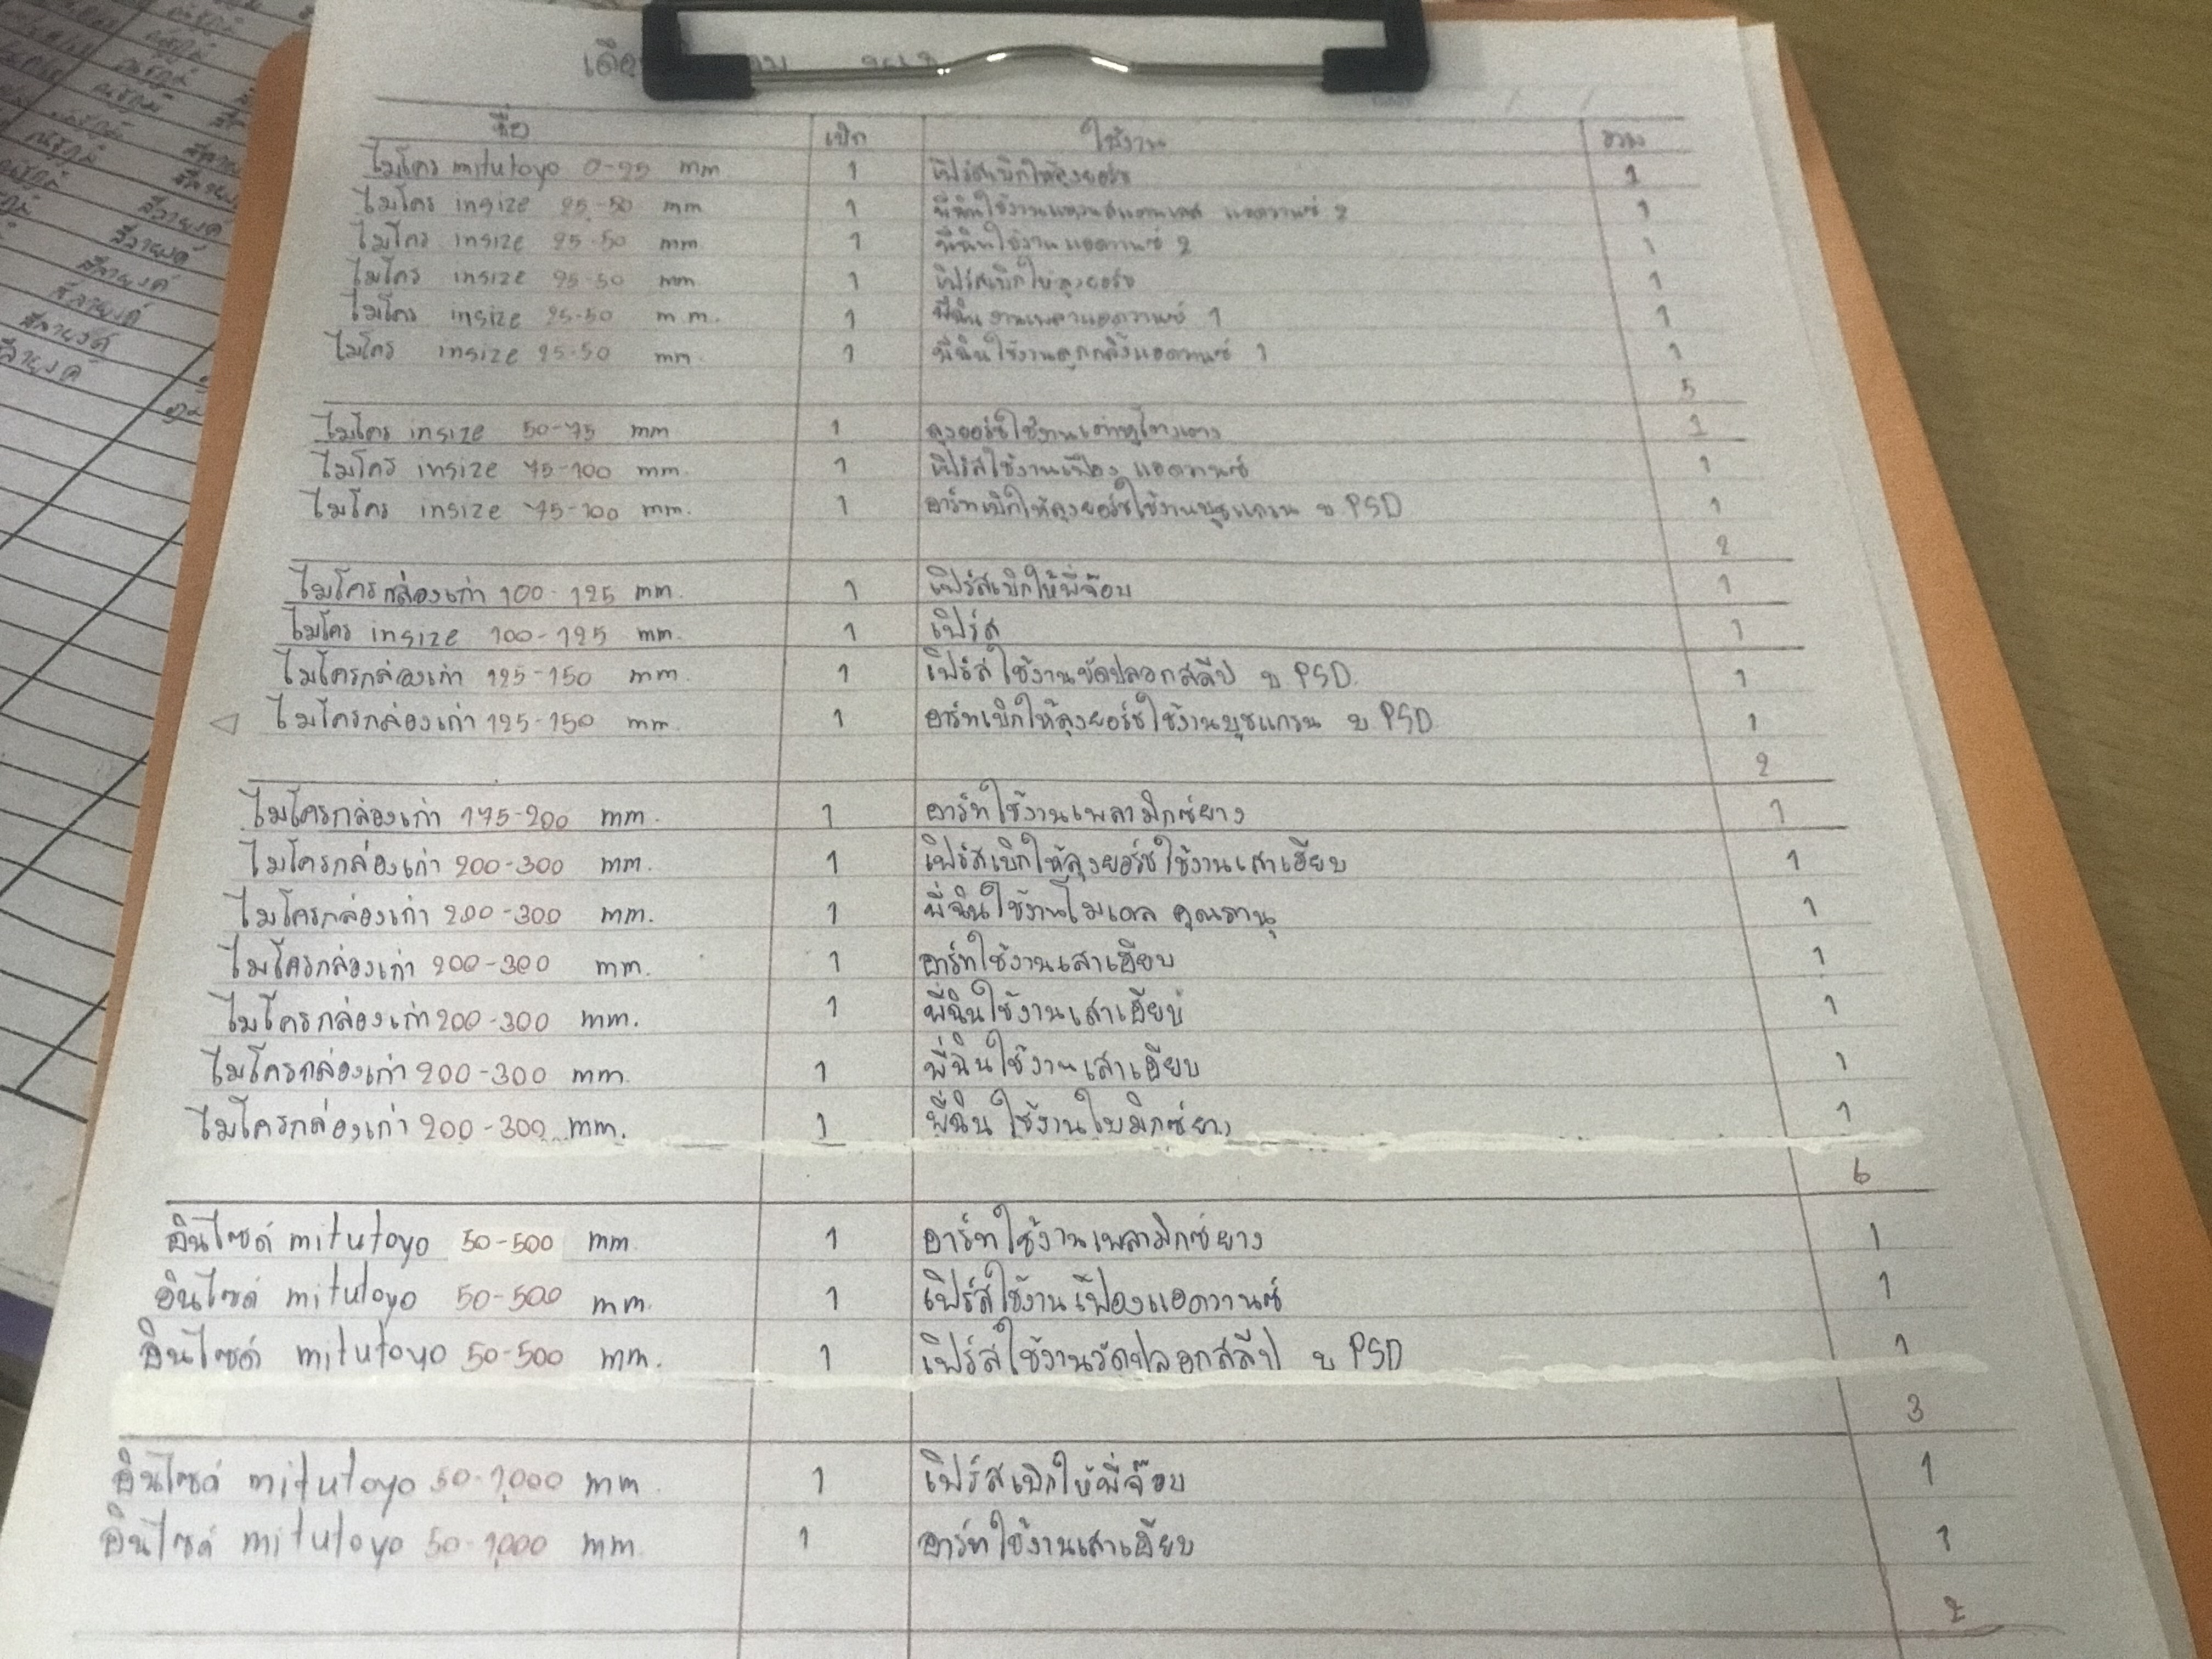 ชื่อ เบิก ใช้งาน รวม
ไมโคร mitutoyo 0-25 mm 1 เฟิร์สเบิกให้ลุงยอร์ช 1
ไมโคร insize 25-50 mm 1 พี่ฉินใช้งานแหวนสแตนเลส แอดวานซ์ 2 1
ไมโคร insize 25-50 mm 1 พี่ฉินใช้งานแอดวานซ์ 2 1
ไมโคร insize 25-50 mm 1 เฟิร์สเบิกให้ลุงยอร์ช 1
ไมโคร insize 25-50 m m. 1 พี่ฉินงานเพลาแอดวานซ์ 1 1
ไมโคร insize 25-50 mm. 1 พี่ฉินใช้งานลูกกลิ้งแอดวานซ์ 1 1
5
ไมโคร insize 50-75 mm 1 ลุงยอร์ชใช้งาน 1
ไมโคร insize 75-100 mm. 1 เฟิร์สใช้งานเฟือง แอดวานซ์ 1
ไมโคร insize 75-100 mm. 1 อาร์ทเบิกให้ลุงยอร์ชใช้งานบุชแกรน บ. PSD 1
2
ไมโครกล่องเก่า 100-125 mm. 1 เฟิร์สเบิกให้พี่จ๊อบ 1
ไมโคร insize 100-125 mm. 1 เฟิร์ส 1
ไมโครกล่องเก่า 125-150 mm. 1 เฟิร์สใช้งานขัดปลอกสลีป บ PSD. 1
ไมโครกล่องเก่า 125-150 mm. 1 อาร์ทเบิกให้ลุงยอร์ชใช้งานบุชแกรน บ. PSD. 1
2
ไมโครกล่องเก่า 175-200 mm. 1 อาร์ทใช้งานเพลามิกซ์ยาง 1
ไมโครกล่องเก่า 200-300 mm. 1 เฟิร์สเบิกให้ลุงยอร์ชใช้งานเสาเฮียบ 1
ไมโครกล่องเก่า 200-300 mm. 1 พี่ฉินใช้งานโมเดล คุณธานุ 1
ไมโครกล่องเก่า 200-300 mm. 1 อาร์ทใช้งานเสาเฮียบ 1
ไมโครกล่องเก่า 200-300 mm. 1 พี่ฉินใช้งานเสาเฮียบ 1
ไมโครกล่องเก่า 200-300 mm. 1 พี่ฉินใช้งานเสาเฮียบ 1
ไมโครกล่องเก่า 200-300 mm. 1 พี่ฉินใช้งานใบมิกซ์ยาง 1
6
อินไซด์ mitutoyo 50-500 mm. 1 อาร์ทใช้งานเพลามิกซ์ยาง 1
อินไซด์ mitutoyo 50-500 mm. 1 เฟิร์สใช้งานเฟืองแอดวานซ์ 1
อินไซด์ mitutoyo 50-500 mm. 1 เฟิร์สใช้งานวัดปลอกสลีป บ PSD 1
3
อินไซด์ mitutoyo 50-1,000 mm. 1 เฟิร์สเบิกให้พี่จ๊อบ 1
อินไซด์ mitutoyo 50-1,000 mm. 1 อาร์ทใช้งานเสาเฮียบ 1
2